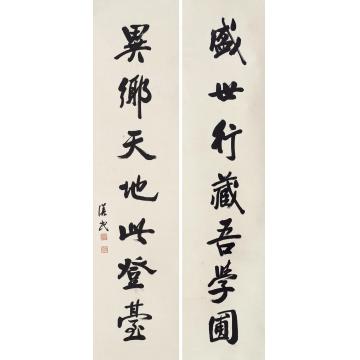 盛世行藏吾学圃
異鄉天地此登臺
漢民